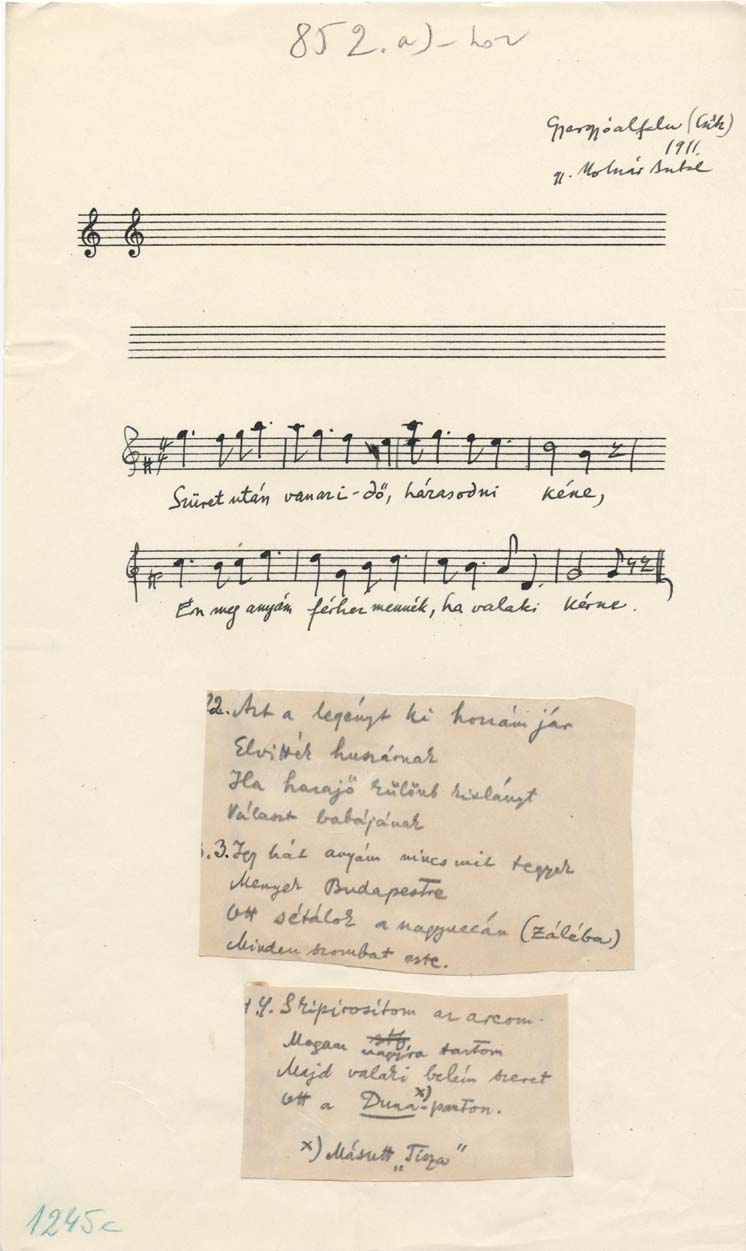 852. a)-hoz
Gyergyóalfalu (Csík)
1911.
gy. Molnár Antal
Szüret után van az i-dő, házasodni kéne,
Én meg anyám férhez mennék, ha valaki kérne.
2. Azt a legényt ki hozzám jár
Elvitték huszárnak
Ha hazajő különb kislányt
Választ babájának
3. Igy hát anyám nincs mit tegyek
Menyek Budapestre
Ott sétálok a nagyuccán (Záléba)
Minden szombat este.
4. S kipirositom az arcom.
Magam nagyra tartom
Majd valaki belém szeret
Ott a Duna x)-parton.
x) Másutt „Tisza"
1245c